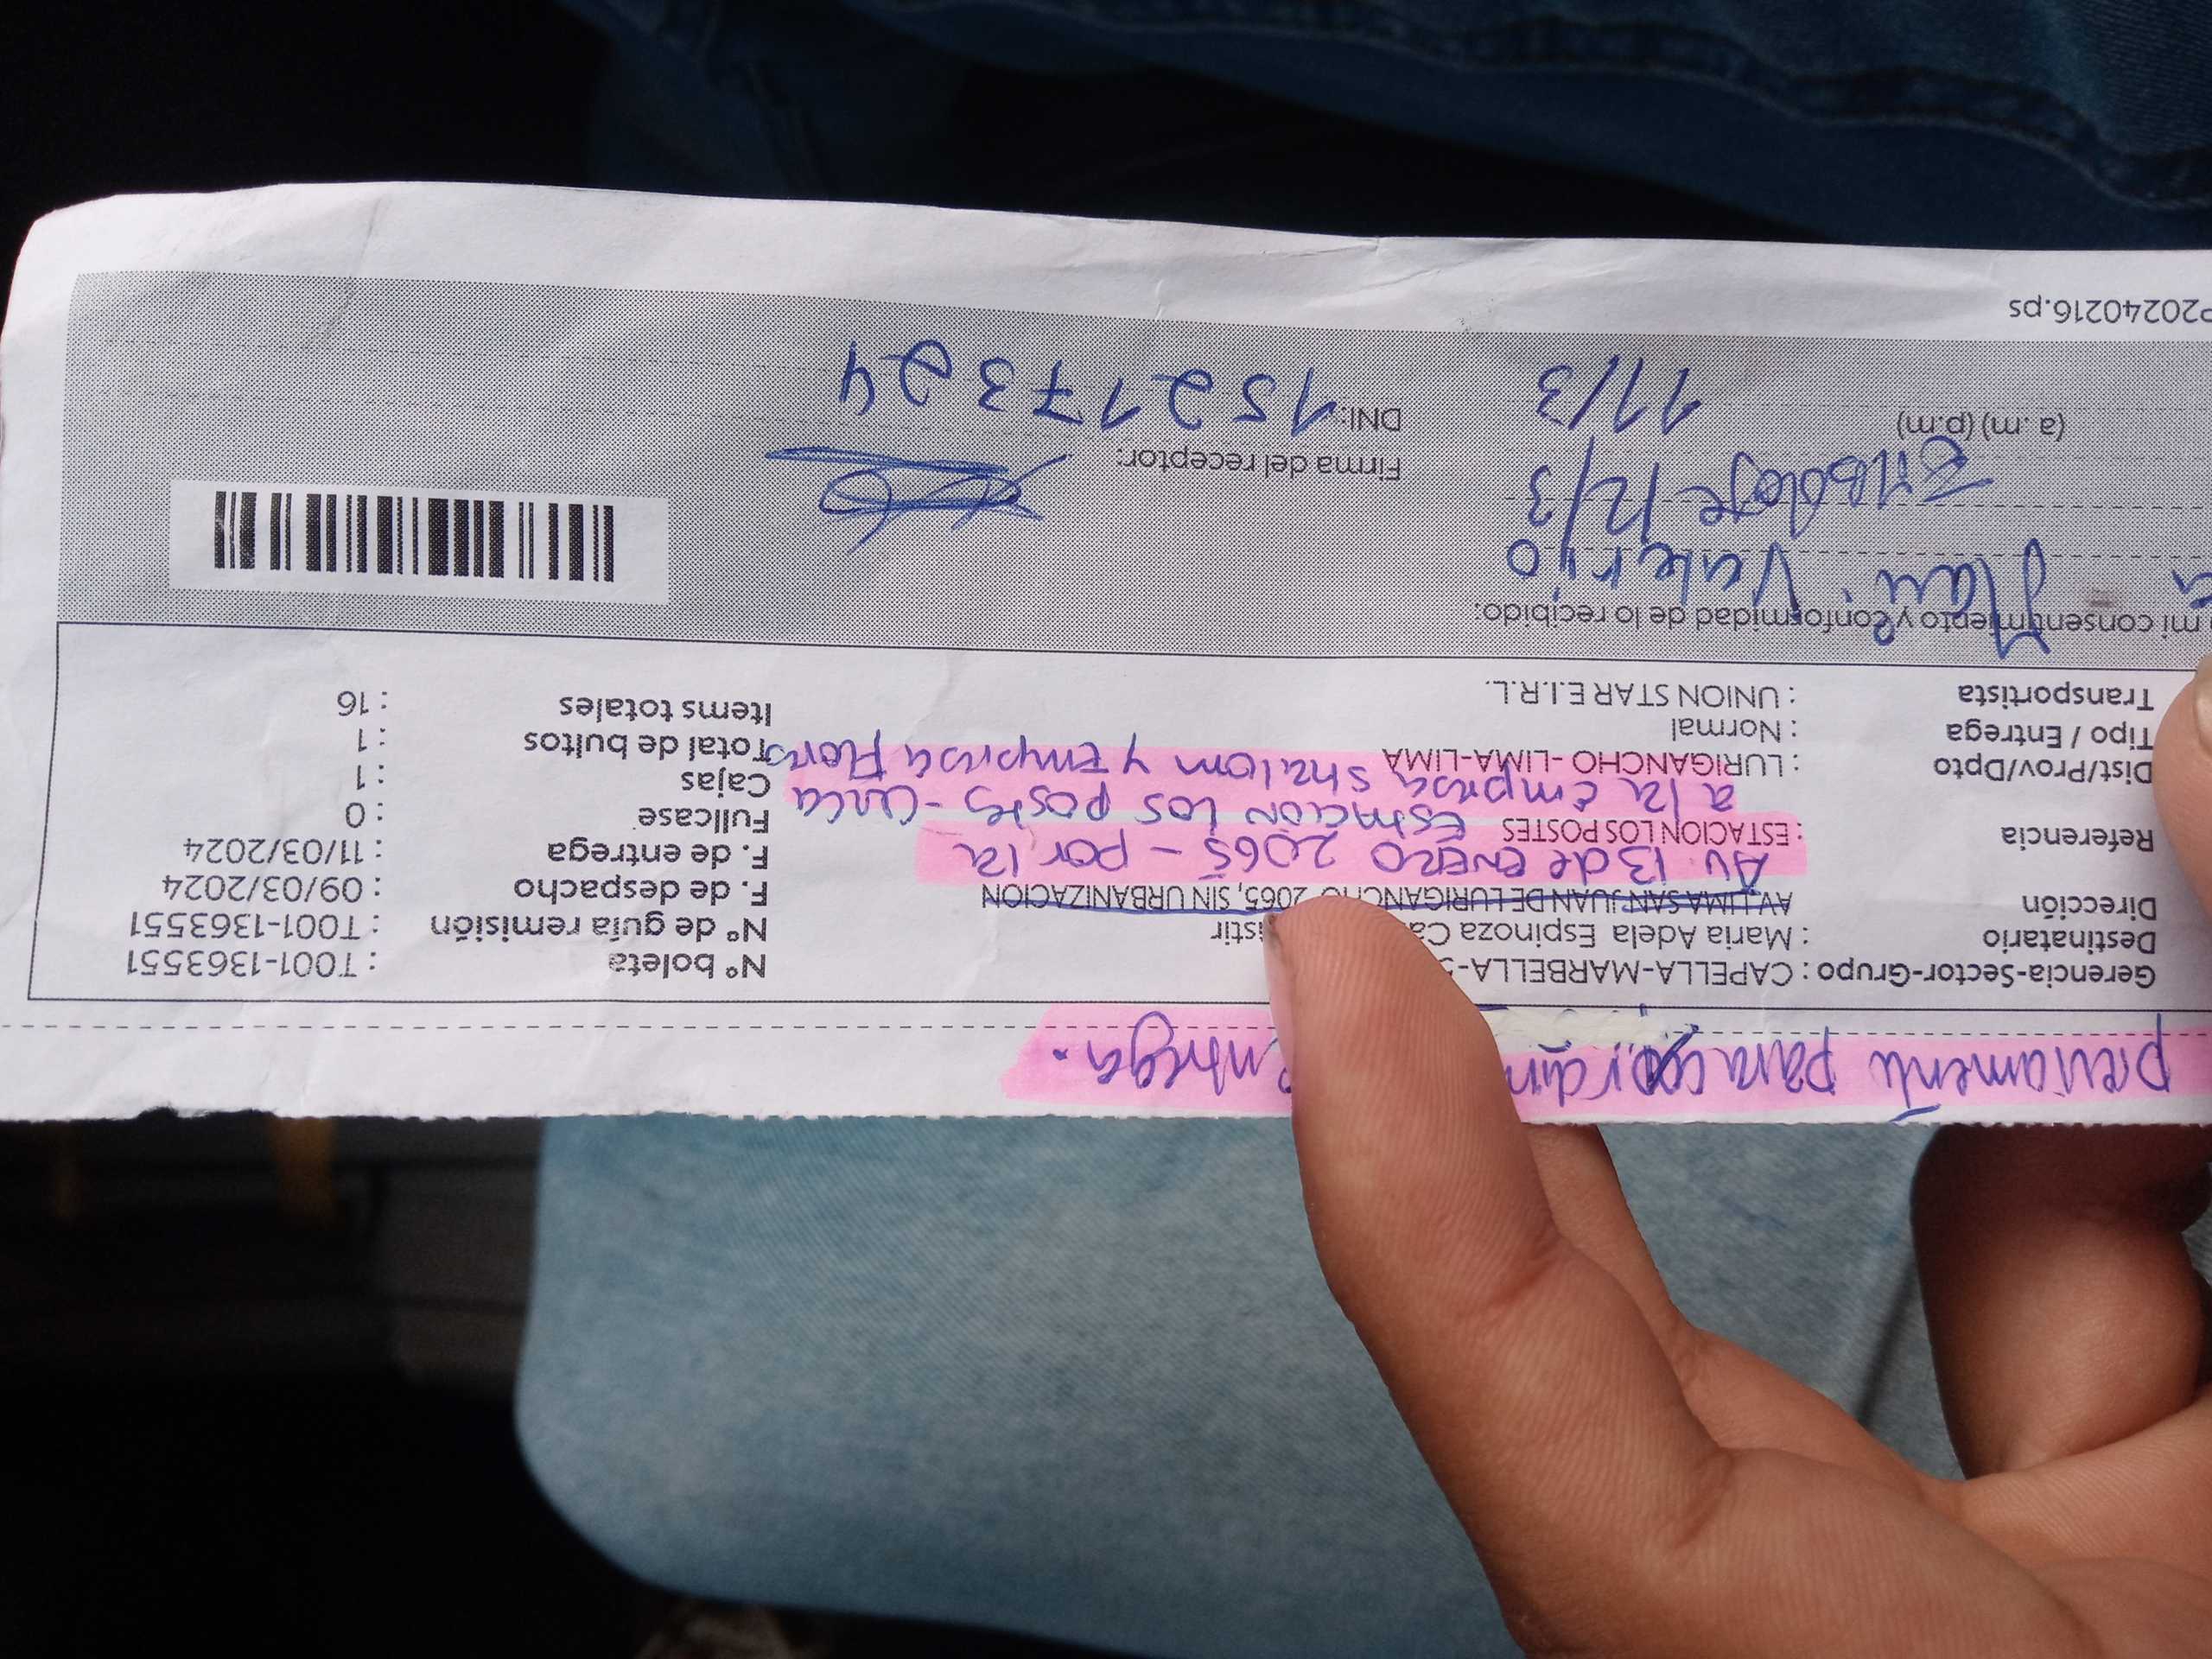 previamente para coordin entrega.
Gerencia-Sector-Grupo : CAPELLA-MARBELLA-
Destinatario : Maria Adela Espinoza Ca istir
Dirección AV. LIMA SAN JUAN DE LURIGANCHO 2065, SIN URBANIZACION
Av. 13 de ENERO 2065 - por la
Referencia : ESTACION LOS POSTES
Estacion Los postes - cerca
a la Empresa Shalom y Empresa Flores
Dist/Prov/Dpto : LURIGANCHO -LIMA-LIMA
Tipo / Entrega : Normal
Transportista : UNION STAR E.I.R.L.
N° boleta : T001-1363551
N° de guía remisión : T001-1363551
F. de despacho : 09/03/2024
F. de entrega : 11/03/2024
Fullcase : 0
Cajas : 1
Total de bultos : 1
Items totales : 16
mi consentimiento y conformidad de lo recibido:
Valerio
12/3
(a .m) (p.m)
11/3
Firma del receptor:
DNI: 15217324
P20240216.ps